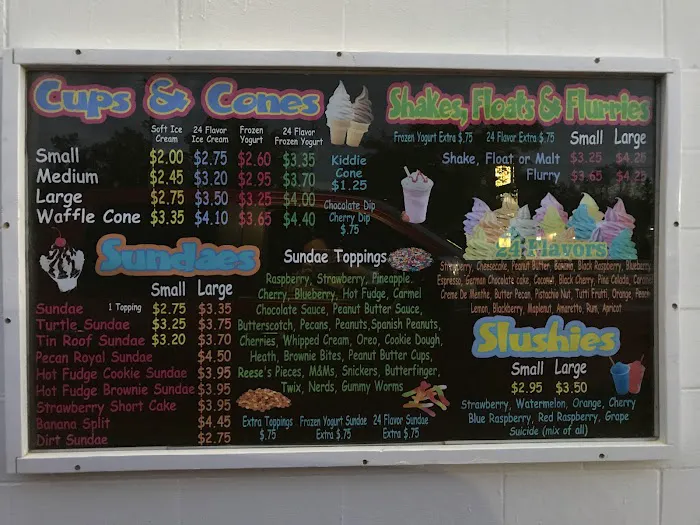 Cups & Cones
Soft Ice Cream 24 Flavor Ice Cream Frozen Yogurt 24 Flavor Frozen Yogurt
Small $2.00 $2.75 $2.60 $3.35
Medium $2.45 $3.20 $2.95 $3.70
Large $2.75 $3.50 $3.25 $4.00
Waffle Cone $3.35 $4.10 $3.65 $4.40
Kiddie
Cone
$1.25
Chocolate Dip
Cherry Dip
$.75
Shakes, Floats & Flurries
Frozen Yogurt Extra $.75 24 Flavor Extra $.75 Small Large
Shake, Float or Malt $3.25 $4.25
Flurry $3.65 $4.25
24 Flavors
Strawberry, Cheesecake, Peanut Butter, Banana, Black Raspberry, Blueberry
Espresso, German Chocolate cake, Coconut, Black Cherry, Pina Colada,
Creme De Menthe, Butter Pecan, Pistachio Nut, Tutti Frutti, Orange, Peach
Lemon, Blackberry, Maplenut, Amaretto, Rum, Apricot
Sundaes
Small Large
Sundae 1 Topping $2.75 $3.35
Turtle Sundae $3.25 $3.75
Tin Roof Sundae $3.20 $3.70
Pecan Royal Sundae $4.50
Hot Fudge Cookie Sundae $3.95
Hot Fudge Brownie Sundae $3.95
Strawberry Short Cake $3.95
Banana Split $4.45
Dirt Sundae $2.75
Sundae Toppings
Raspberry, Strawberry, Pineapple,
Cherry, Blueberry, Hot Fudge, Carmel
Chocolate Sauce, Peanut Butter Sauce,
Butterscotch, Pecans, Peanuts, Spanish Peanuts,
Cherries, Whipped Cream, Oreo, Cookie Dough,
Heath, Brownie Bites, Peanut Butter Cups,
Reese's Pieces, M&Ms, Snickers, Butterfinger,
Twix, Nerds, Gummy Worms
Extra Toppings $.75
Frozen Yogurt Sundae Extra $.75
24 Flavor Sundae Extra $.75
Slushies
Small Large
$2.95 $3.50
Strawberry, Watermelon, Orange, Cherry
Blue Raspberry, Red Raspberry, Grape
Suicide (mix of all)